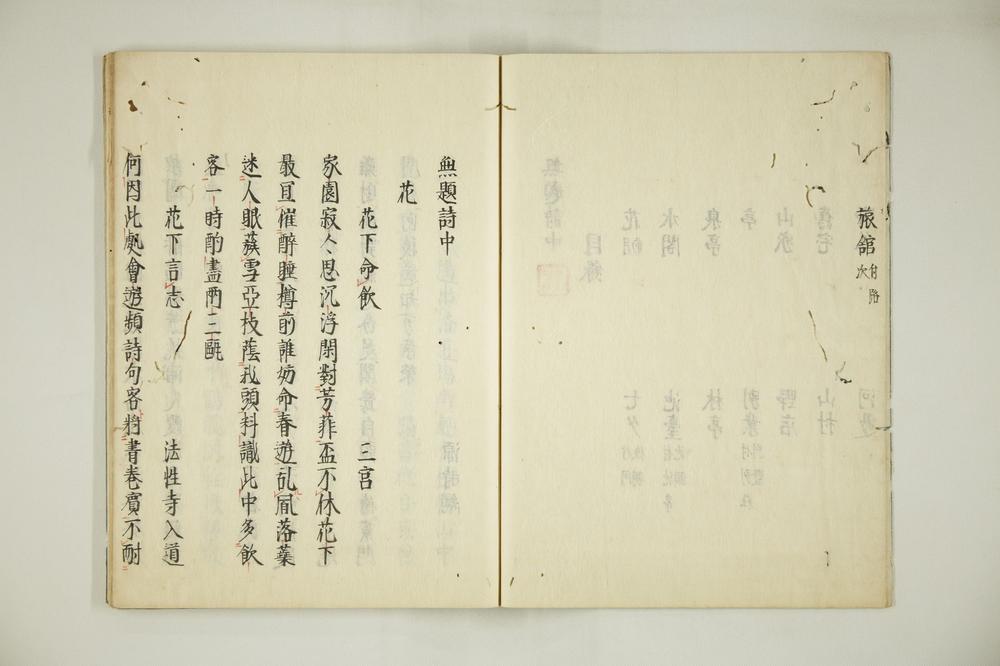 旅舘 付路次
無題詩中
花
花下命飲 三宮
家園寂々思沉浮閑對芳菲盃不休花下
最宜催醉睡樽前誰妨命春遊乱風落葉
迷人眼蔟雪亞枝蔭我頭料識此中多飲
客一時酌盡両三甌
花下言志 法性寺入道
何因此處會遊頻詩句客將書卷賓不耐